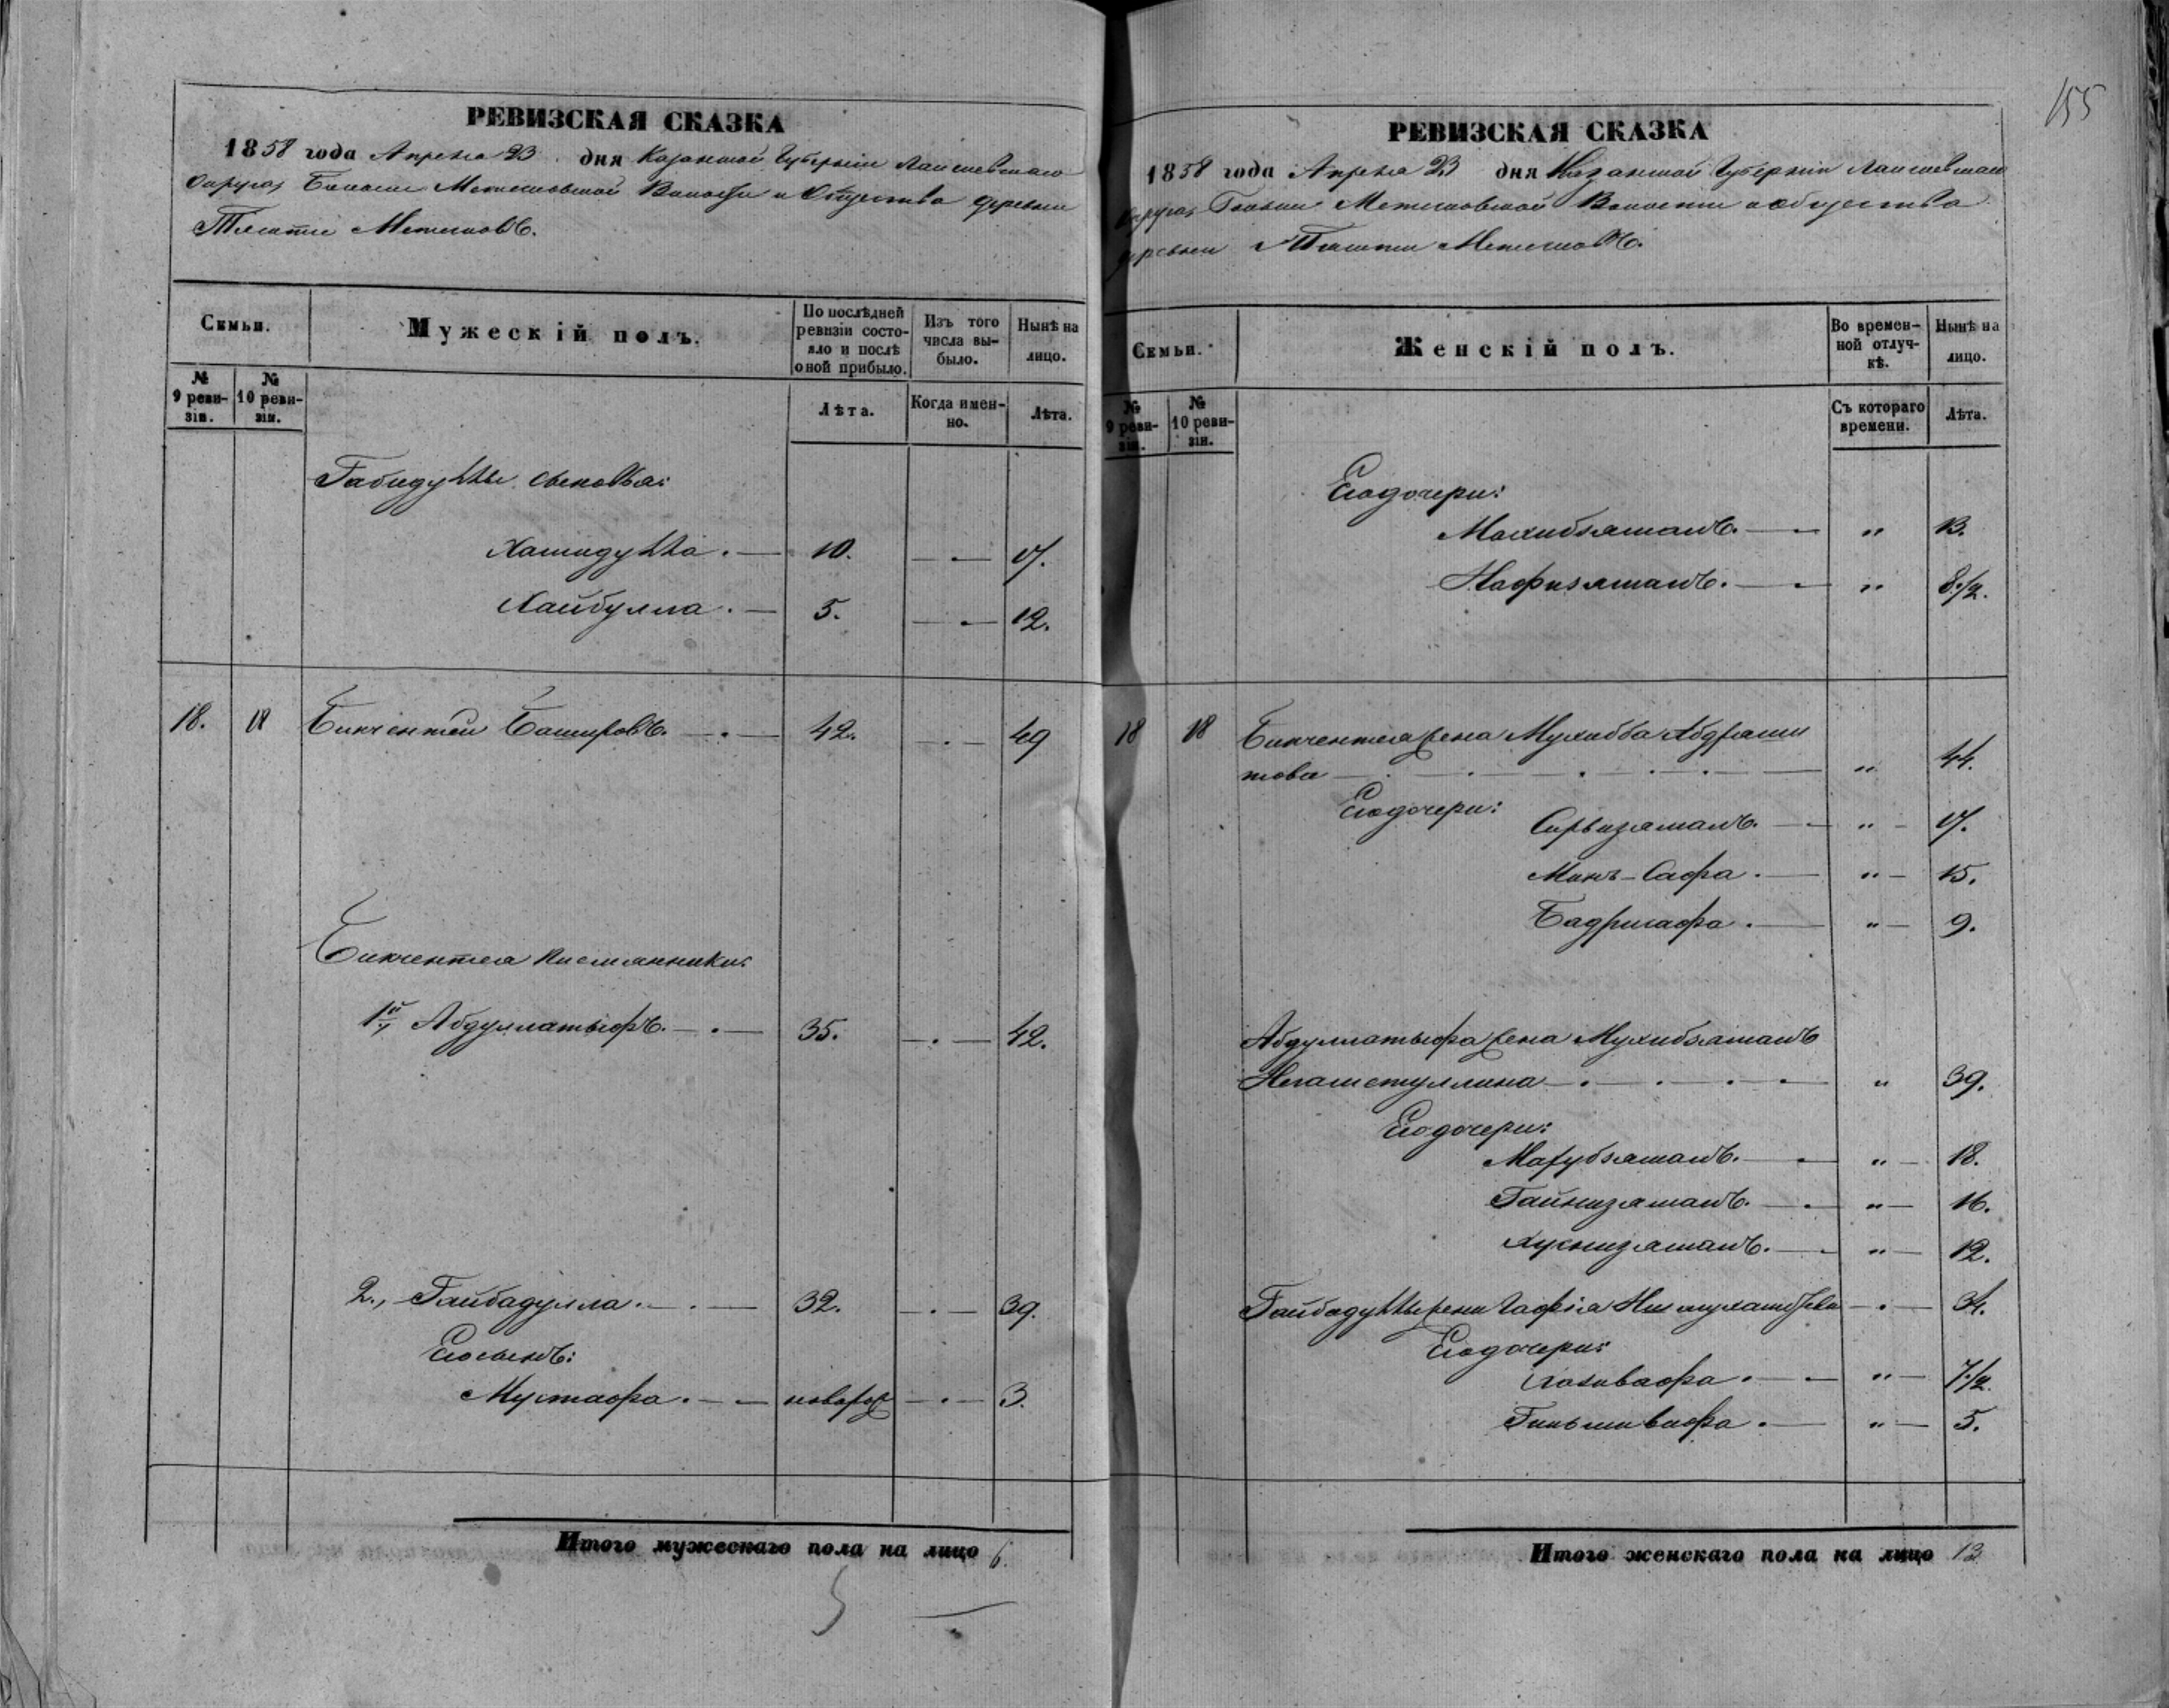 155
РЕВИЗСКАЯ СКАЗКА
1858 года Апреля 23 дня Казанской Губерніи Лаишевскаго
Округа, Больше Метесковской Волости и Общества деревни
Метесковъ.
Семьи.
Мужескій полъ.
По послѣдней ревизіи состояло и послѣ оной прибыло.
Изъ того числа выбыло.
Нынѣ на лицо.
№ 9 ревизіи.
№ 10 ревизіи.
Лѣта.
Когда именно.
Лѣта.
Габидуллы сыновья:
Хамидулла. — 10. — 17.
Хайбулла. — 5. — 12.
18. 18 Бикчентей Башировъ. — 42. — 49
Бикчентея племянники:
1й Абдуллатыфъ. — 35. — 42.
2., Гайбадулла. — 32. — 39.
Его сынъ:
Мустафа. — новорож — 3.
Итого мужескаго пола на лицо 6.
РЕВИЗСКАЯ СКАЗКА
1858 года Апреля 23 дня Казанской Губерніи Лаишевскаго
Округа, Больше Метесковской Волости и общества
деревни Метесковъ.
Семьи.
Женскій полъ.
Во временной отлучкѣ.
Нынѣ на лицо.
№ 9 ревизіи.
№ 10 ревизіи.
Съ котораго времени.
Лѣта.
Его дочери:
Махибзямалъ. — " 13.
Нафизямалъ. — " 8 1/2.
18 18 Бикчентея жена Мухибба Абдраши
това — " 44.
Его дочери:
Сарвизямалъ. — " — 17.
Минъ-Сафа. — " — 15.
Бадрисафа. — " — 9.
Абдуллатыфа жена Мухибзямалъ
Негаметуллина — " 39.
Его дочери:
Магубзямалъ. — " — 18.
Гайнизямалъ. — " — 16.
Хуснизямалъ. — " — 12.
Гайбадуллы жена Гафія — 34.
Его дочери:
— " — 7 1/2.
— " — 5.
Итого женскаго пола на лицо 13